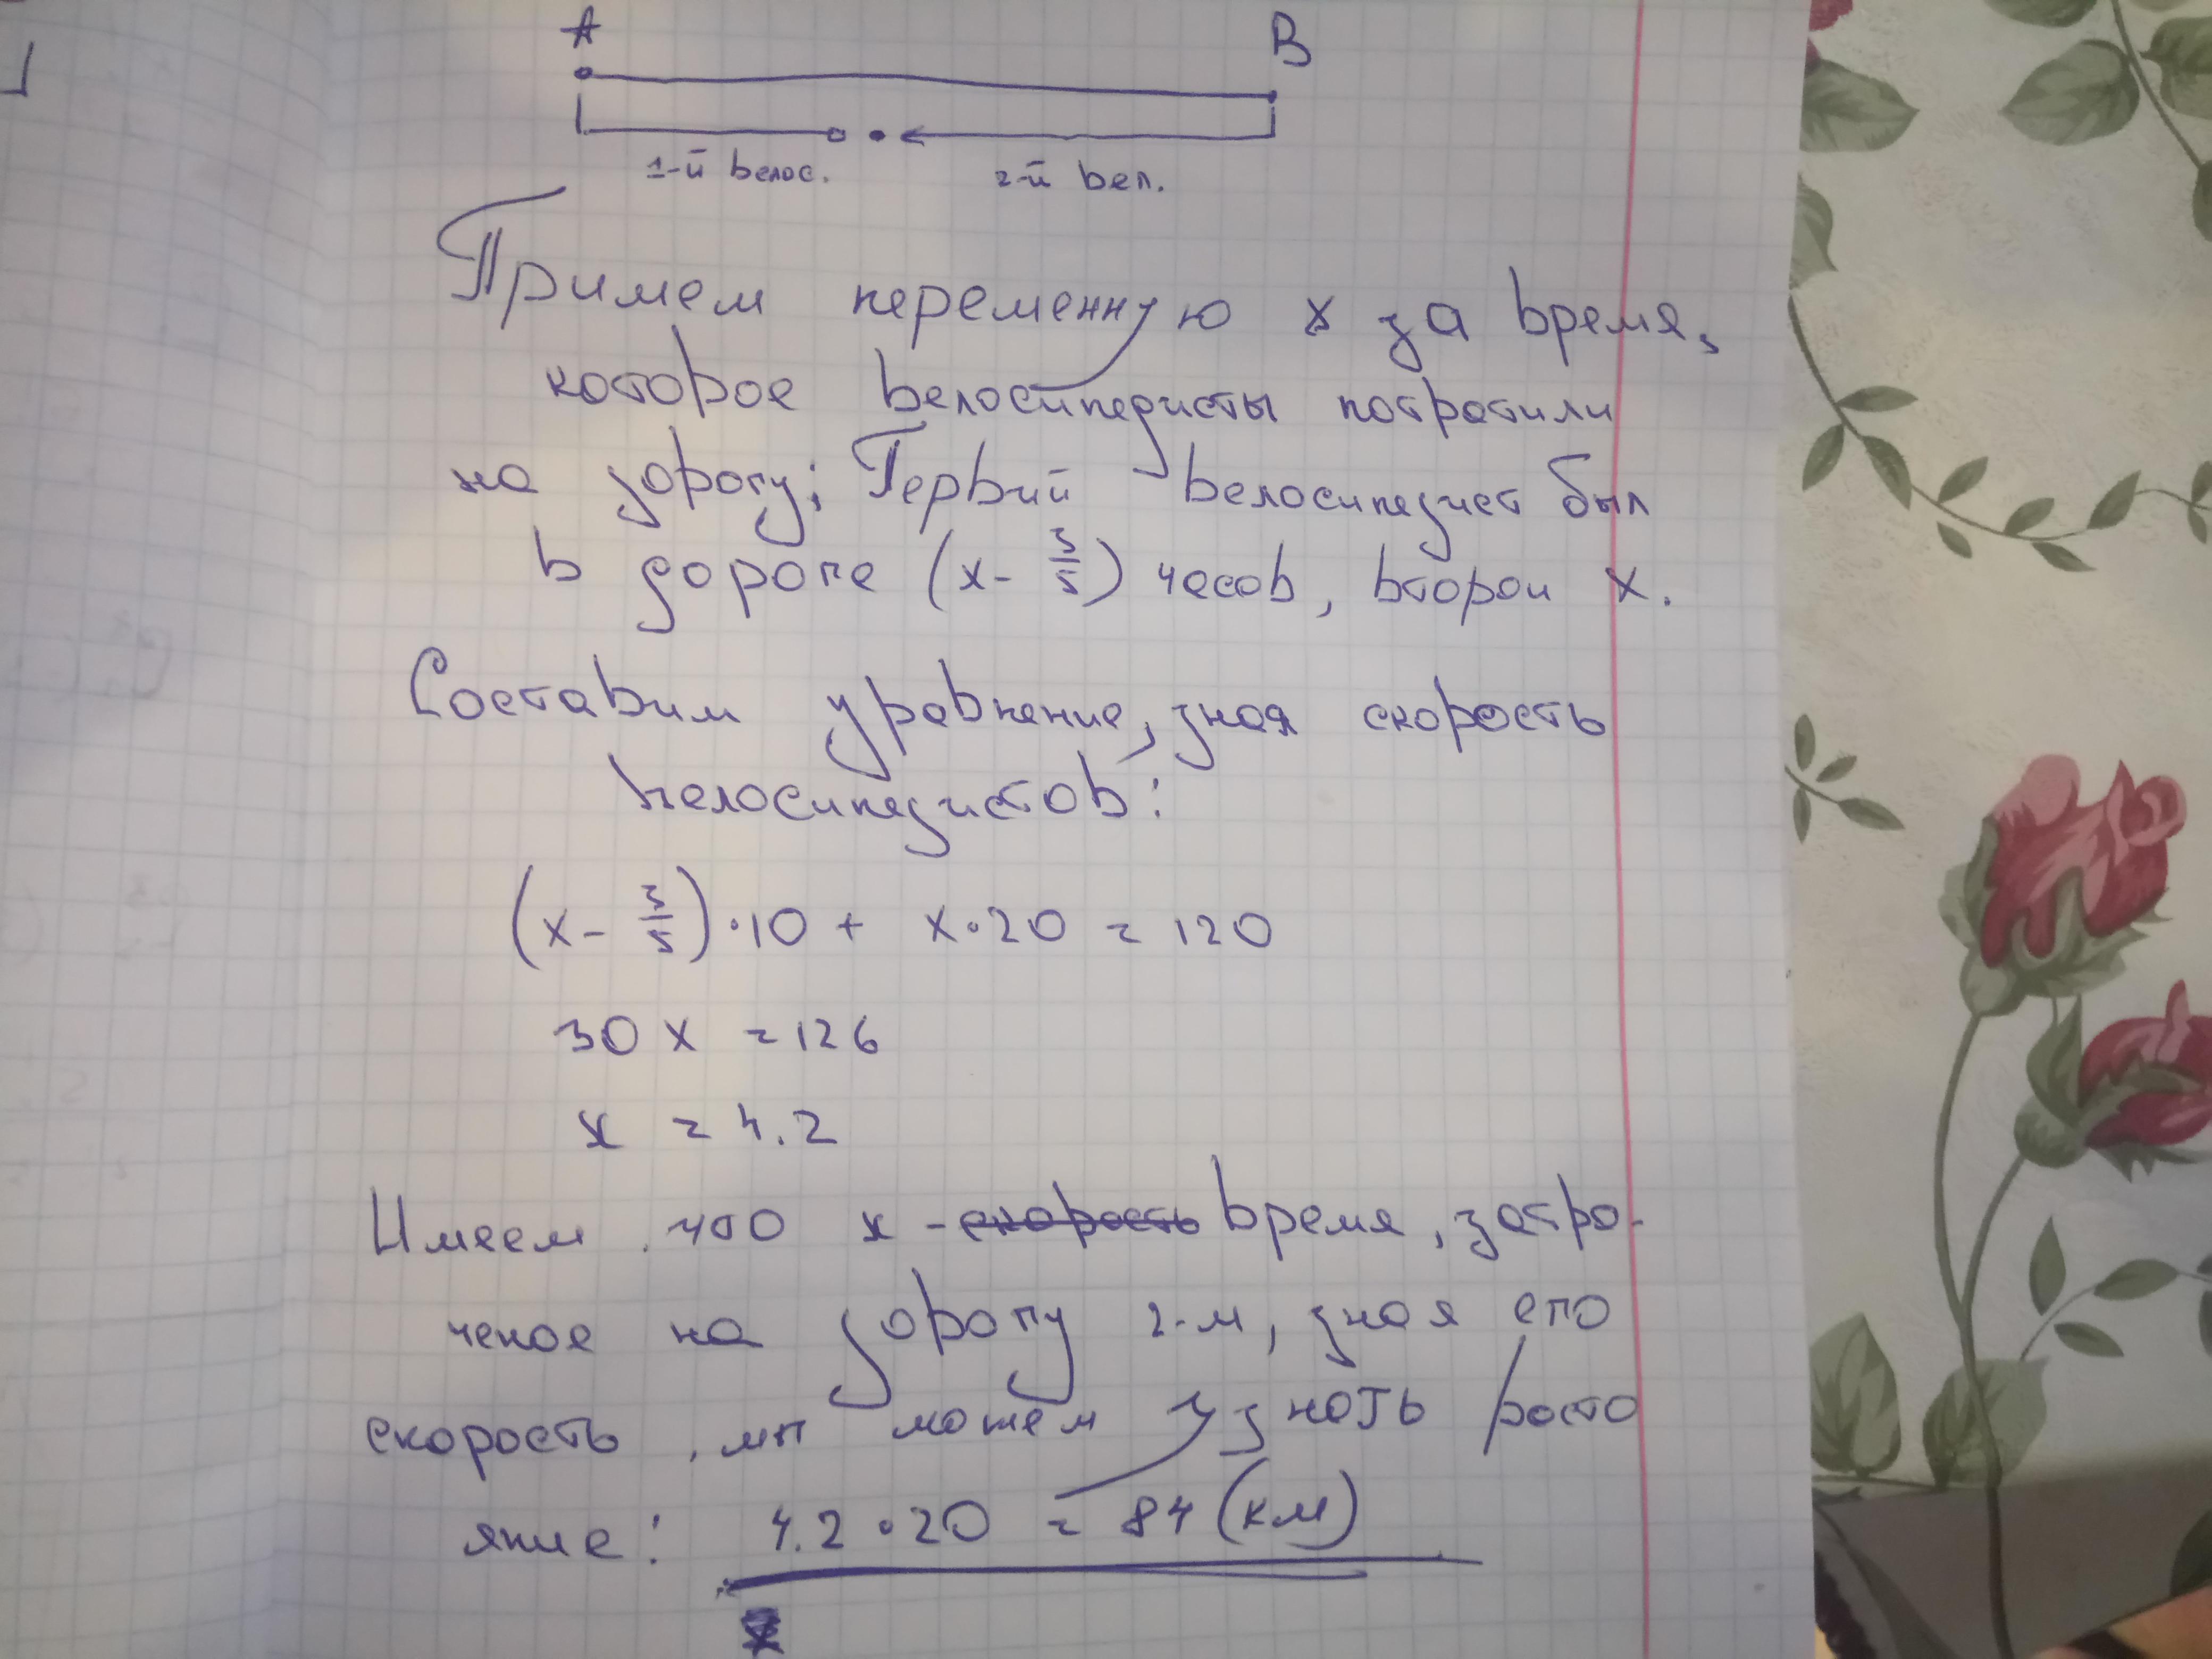 A B
1-й велос. 2-й вел.
Примем переменную x за время,
которое велосипедисты потратили
на дорогу; Первый велосипедист был
в дороге (x - 3/5) часов, второй x.
Составим уравнение, зная скорость
велосипедистов:
(x - 3/5) · 10 + x · 20 = 120
30 x = 126
x = 4.2
Имеем, что x - скорость время, затра-
ченое на дорогу 2-м, зная его
скорость, мы можем узнать расто
яние: 4.2 · 20 = 84 (км)